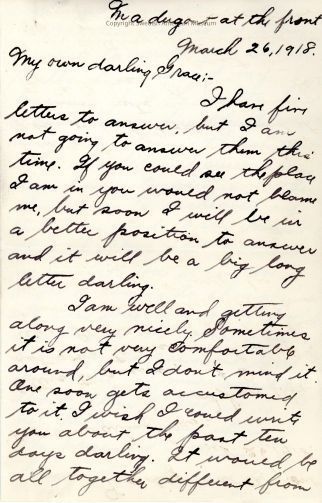 In a dugout - at the front
March 26, 1918.
My own darling Grace:-
I have five
letters to answer, but I am
not going to answer them this
time. If you could see the place
I am in you would not blame
me, but soon I will be in
a better position to answer
and it will be a big long
letter darling.
I am well and getting
along very nicely. Sometimes
it is not very comfortable
around, but I don't mind it.
One soon gets accustomed
to it. I wish I could write
you about the past ten
days darling. It would be
all together different from